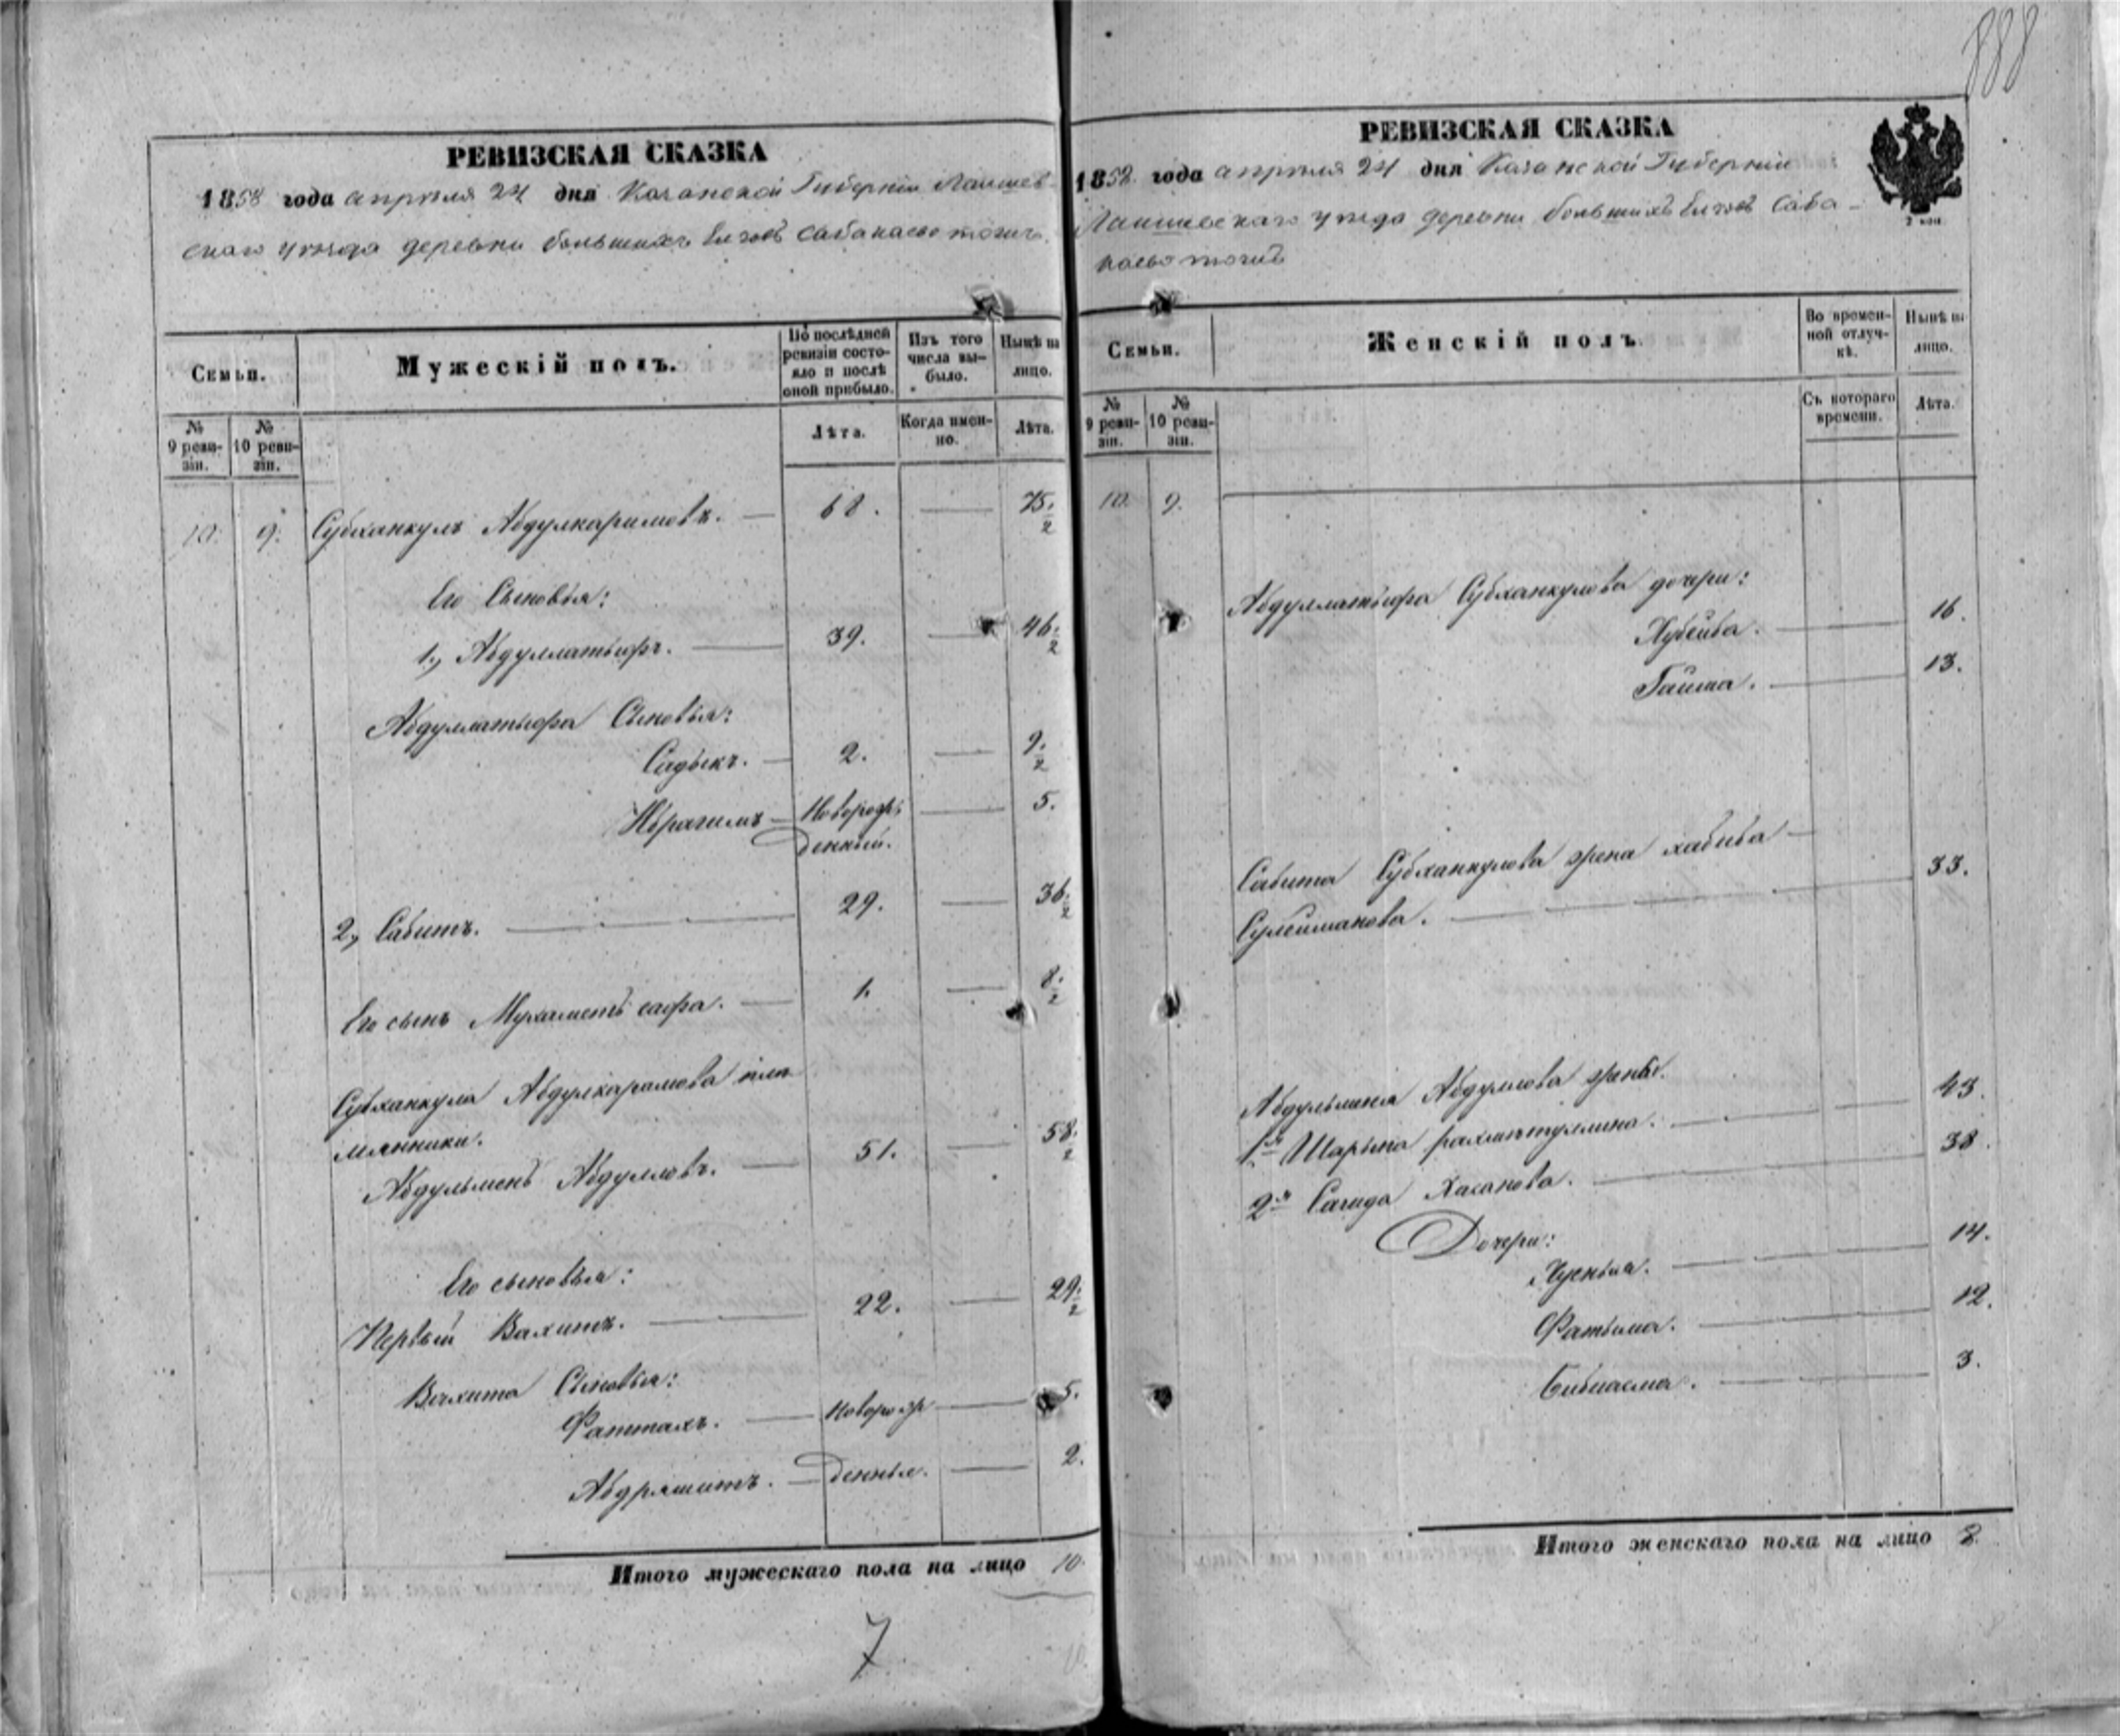 888
РЕВИЗСКАЯ СКАЗКА
1858 года апреля 24 дня Казанской Губернии Лаишев-
скаго уезда деревни большихъ Елговъ Сабакаево тожъ
Семьи.
Мужескій полъ.
По послѣдней ревизіи состояло и послѣ оной прибыло.
Изъ того числа выбыло.
Нынѣ на лицо.
№ 9 ревизіи.
№ 10 ревизіи.
Лѣта.
Когда именно.
Лѣта.
10. 9. Субханкулъ Абдулкаримовъ. — 68. — 75 1/2
Его Сыновья:
1, Абдуллатыфъ. — 39. — 46 1/2
Абдуллатыфа Сыновья:
Садыкъ. — 2. — 9 1/2
Ибрагимъ — Новорож- — 5.
денный.
2, Сабитъ. — 29. — 36 1/2
Его сынъ Мухаметъ сафа. — 1. — 8 1/2
Субханкула Абдулкаримова пле-
мянники.
Абдульменъ Абдулловъ. — 51. — 58 1/2
Его сыновья:
Первый Вахитъ. — 22. — 29 1/2
Вахита Сыновья:
Фаттахъ. — Новорож — 5.
Абдряшитъ. — денные. — 2.
Итого мужескаго пола на лицо 10.
7
РЕВИЗСКАЯ СКАЗКА
1858 года апреля 24 дня Казанской Губернии
Лаишевскаго уезда деревни большихъ Елговъ Саба-
каево тожъ
2 коп.
Семьи.
Женскій полъ.
Во временной отлучкѣ.
Нынѣ на лицо.
№ 9 ревизіи.
№ 10 ревизіи.
Съ котораго времени.
Лѣта.
10. 9.
Абдуллатыфа Субханкулова дочери:
Хубейба. — 16.
Гайша. — 13.
Сабита Субханкулова жена хабиба —
Сулейманова. — 33.
Абдульменя Абдуллова жены.
1я Шарыпа рахметуллина. — 43.
2я Сагида Хасанова. — 38.
Дочери:
Хусныя. — 14.
Фатыма. — 12.
Бибиасма. — 3.
Итого женскаго пола на лицо 8.